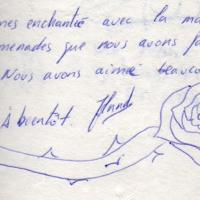 mes enchanté avec la ma
menades que nous avons fa
Nous avons aimé beauco
À bientôt.